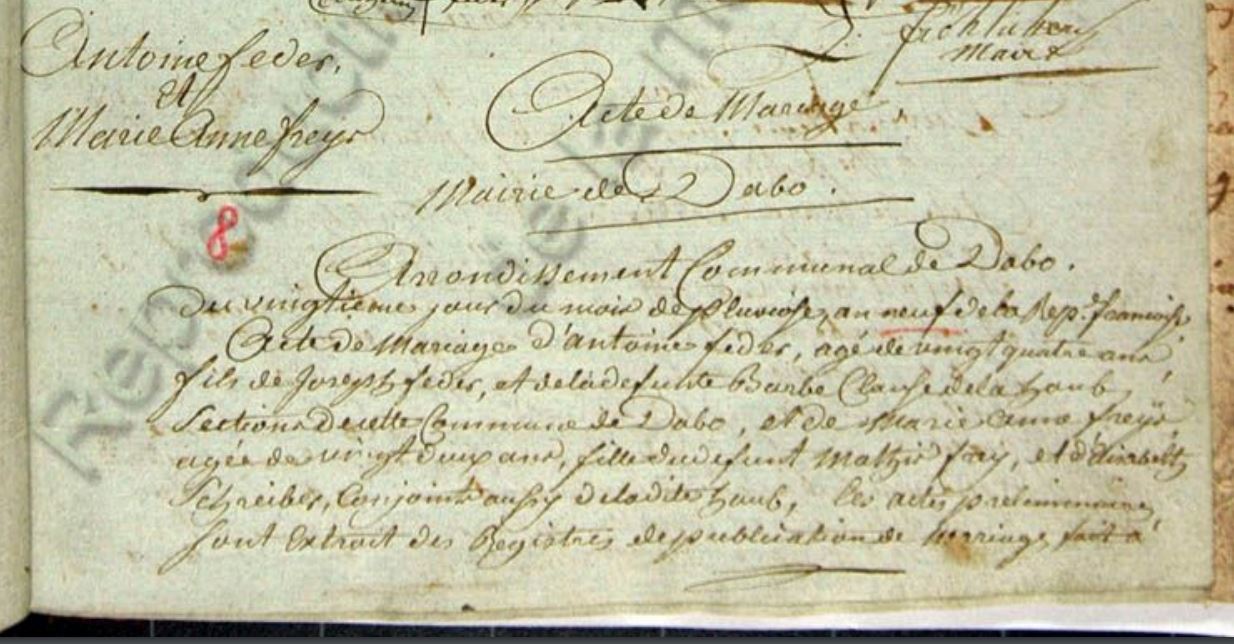 Antoine feder,
et
Marie Anne freys
8
Maire
Acte de Mariage,
Mairie de Dabo.
Arrondissement Communal de Dabo.
Du vingtieme jour du mois de pluviose, an neuf de la Rep. francaise
Acte de Mariage d'antoine feder, agé de vingt quatre ans,
fils de Joseph feder, et de la defunte Barbe Clause de la houb
Section de cette Commune de Dabo, et de Marie anne freys
agée de vingt deux ans, fille du defunt Mathis frey, et d'Elisabeth
Schreiber, Conjoints aussy de la dite houb, les actes preliminaires
sont Extrait des Registres de publication de Marriage fait a